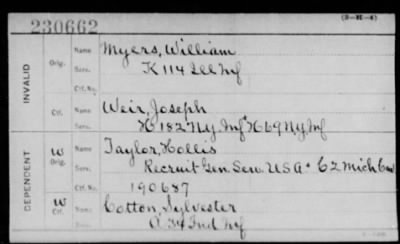 230662
(3-ME-4)
INVALID
Orig.
Name
Myers, William
Serv.
K 114 Ill Inf
Ctf. No.
Ctf.
Name
Weir, Joseph
Serv.
H 182 N.Y. Inf & K 69 N.Y. Inf
DEPENDENT
W
Orig.
Name
Taylor, Hollis
Serv.
Recruit Gen. Serv. U.S.A. & C 2 Mich Cav
Ctf. No.
190687
W
Ctf.
Name
Cotton, Sylvester
Serv.
A 34 Ind Inf